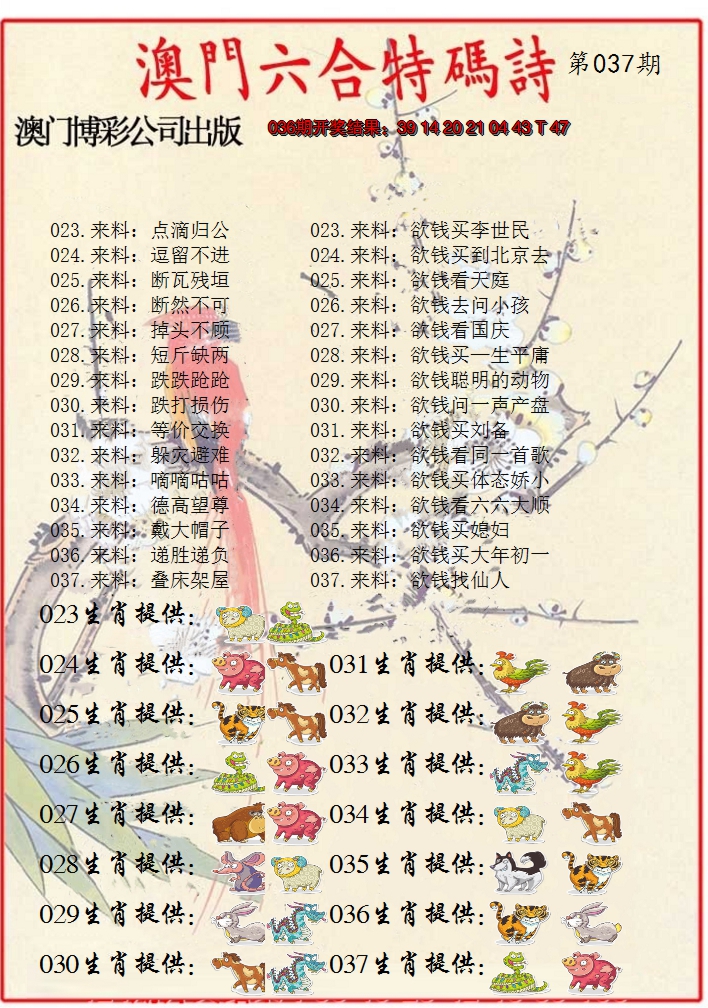 澳門六合特碼詩 第037期
澳门博彩公司出版 036期开奖结果：39 14 20 21 04 43 T 47
023.来料：点滴归公 023.来料：欲钱买李世民
024.来料：逗留不进 024.来料：欲钱买到北京去
025.来料：断瓦残垣 025.来料：欲钱看天庭
026.来料：断然不可 026.来料：欲钱去问小孩
027.来料：掉头不顾 027.来料：欲钱看国庆
028.来料：短斤缺两 028.来料：欲钱买一生平庸
029.来料：跌跌跄跄 029.来料：欲钱聪明的动物
030.来料：跌打损伤 030.来料：欲钱问一声产盘
031.来料：等价交换 031.来料：欲钱买刘备
032.来料：躲灾避难 032.来料：欲钱看同一首歌
033.来料：嘀嘀咕咕 033.来料：欲钱买体态娇小
034.来料：德高望尊 034.来料：欲钱看六六大顺
035.来料：戴大帽子 035.来料：欲钱买媳妇
036.来料：递胜递负 036.来料：欲钱买大年初一
037.来料：叠床架屋 037.来料：欲钱找仙人
023生肖提供：
024生肖提供： 031生肖提供：
025生肖提供： 032生肖提供：
026生肖提供： 033生肖提供：
027生肖提供： 034生肖提供：
028生肖提供： 035生肖提供：
029生肖提供： 036生肖提供：
030生肖提供： 037生肖提供：